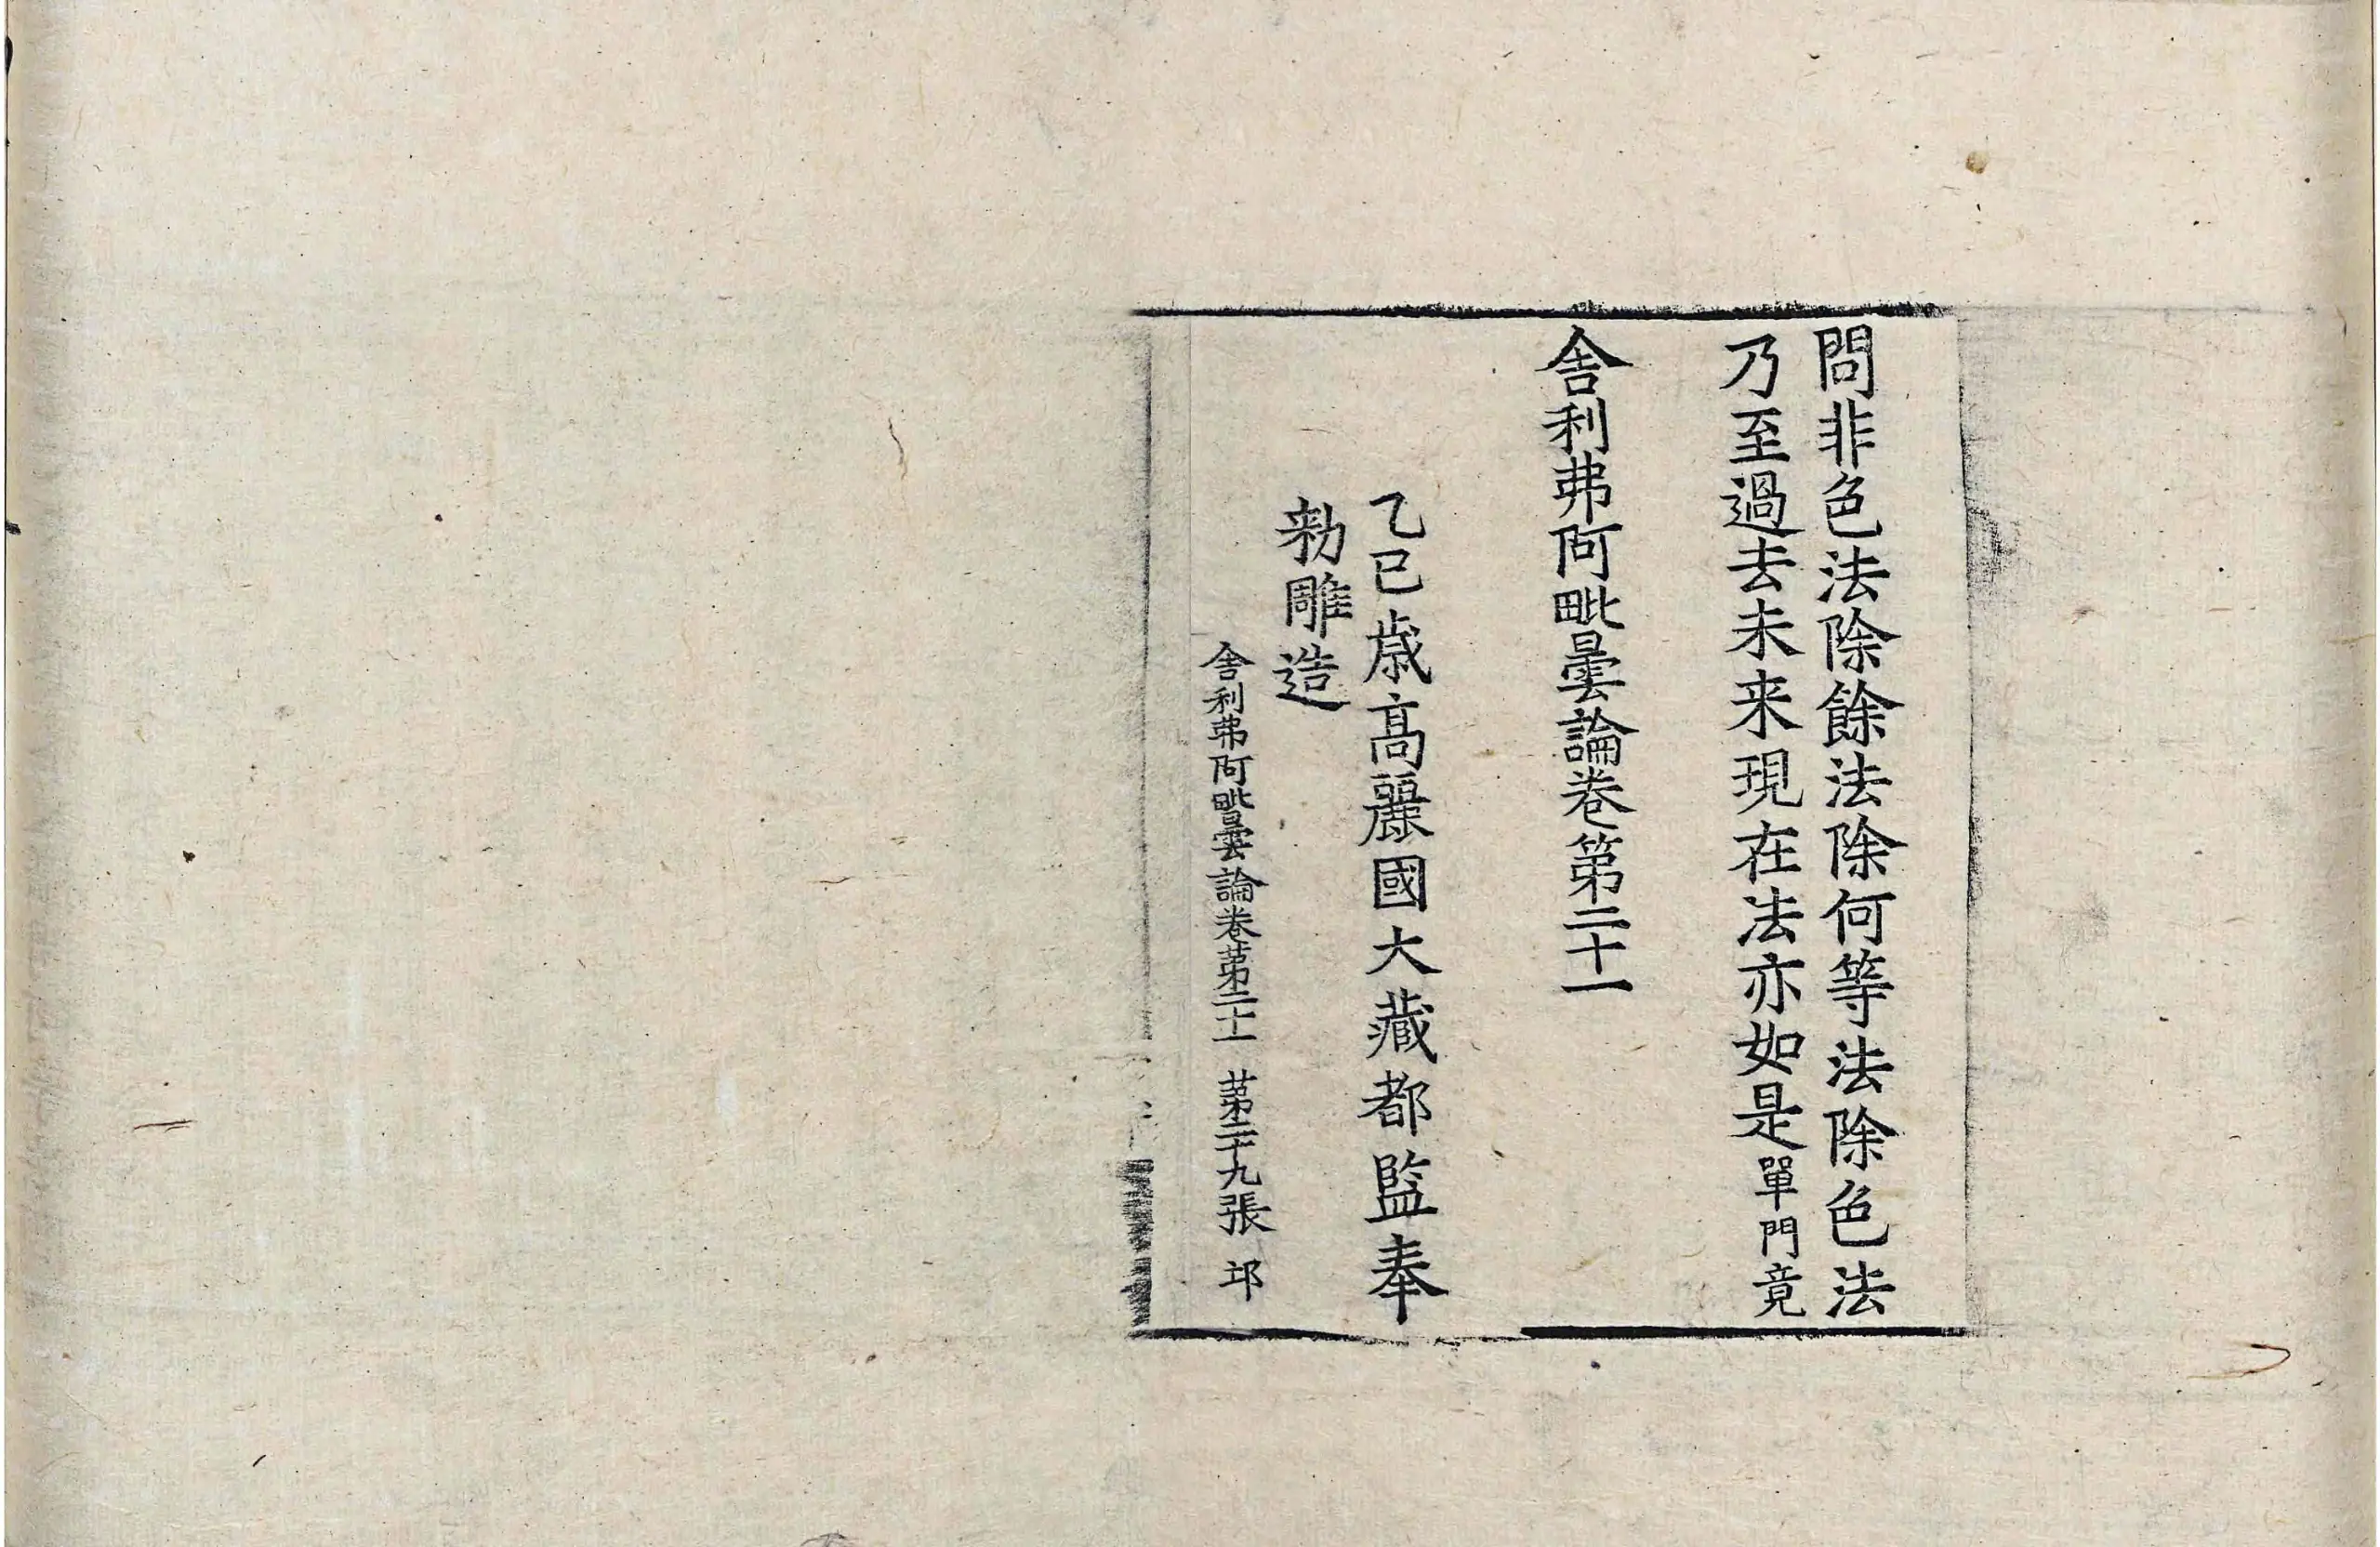 問非色法除餘法除何等法除色法
乃至過去未来現在法亦如是單門竟
舎利弗阿毗曇論卷第二十一
乙巳歳高麗國大藏都監奉
勑雕造
舎利弗阿毗曇論卷苐二十一 苐二十九張 邛